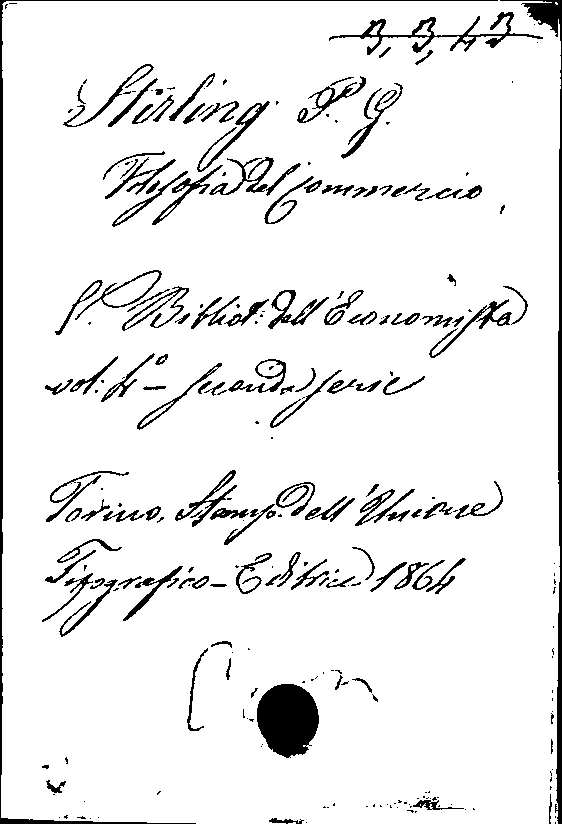 3, 3, 43
Stirling P. G.
Filosofia del Commercio
V. Bibliot: dell'Economista
vol: 4º - seconda serie
Torino, Stamp. dell'Unione
Tipografico-Editrice 1864